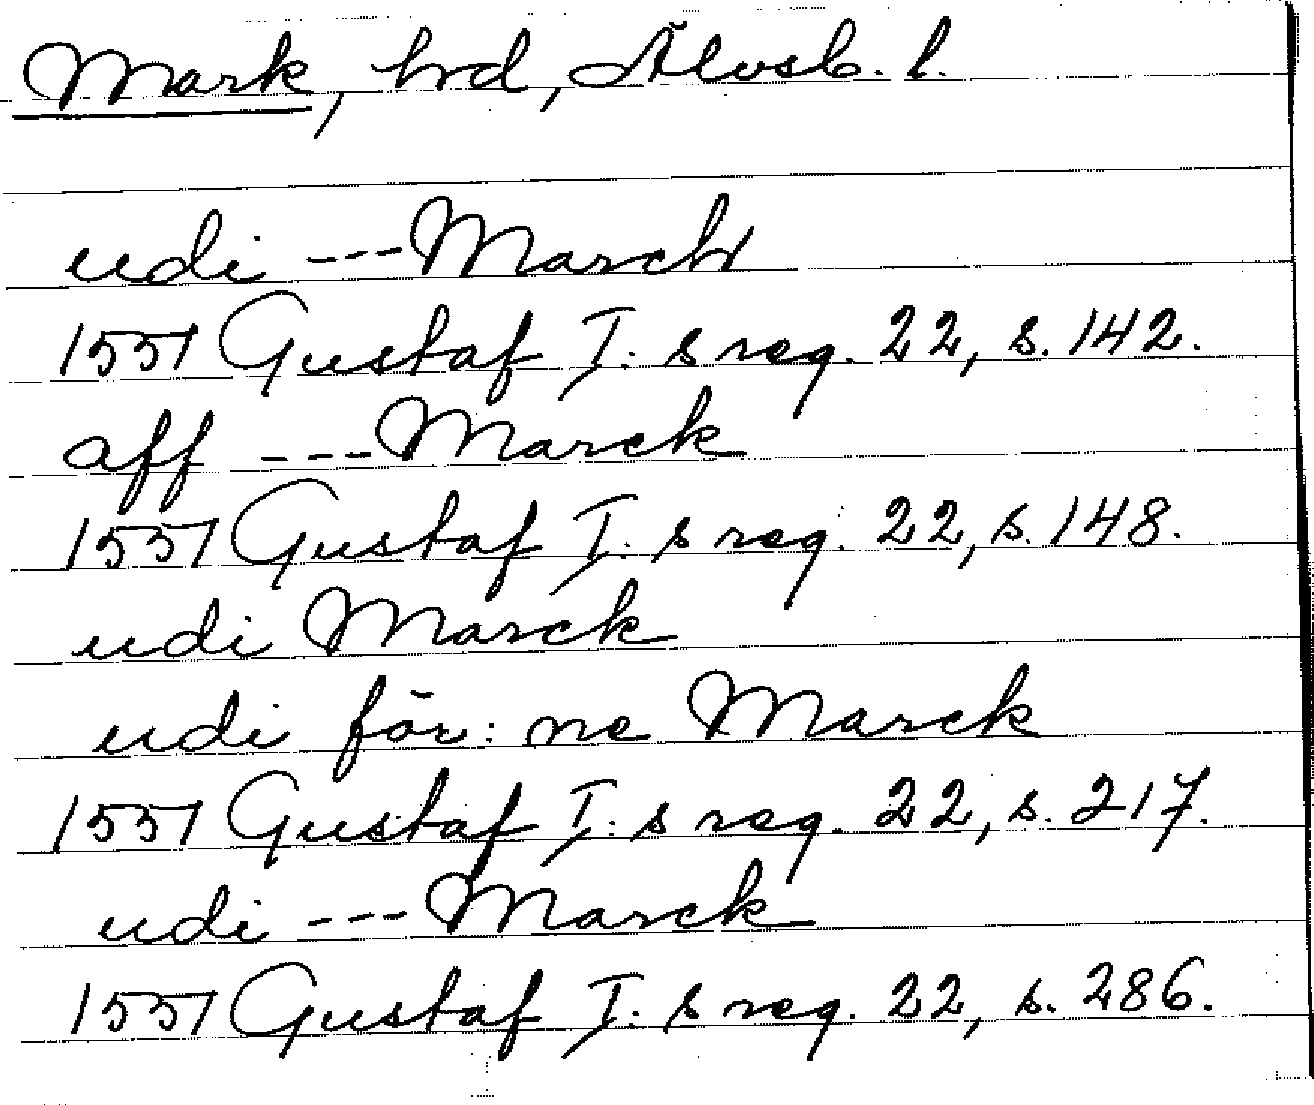 Mark, hrd, Älvsb. l.
udi --- March
1551 Gustaf I. s reg. 22, s. 142.
aff --- Marck
1551 Gustaf I. s reg. 22, s. 148.
udi Marck
udi för: ne Marck
1551 Gustaf I. s reg. 22, s. 217.
udi --- Marck
1551 Gustaf I. s reg. 22, s. 286.